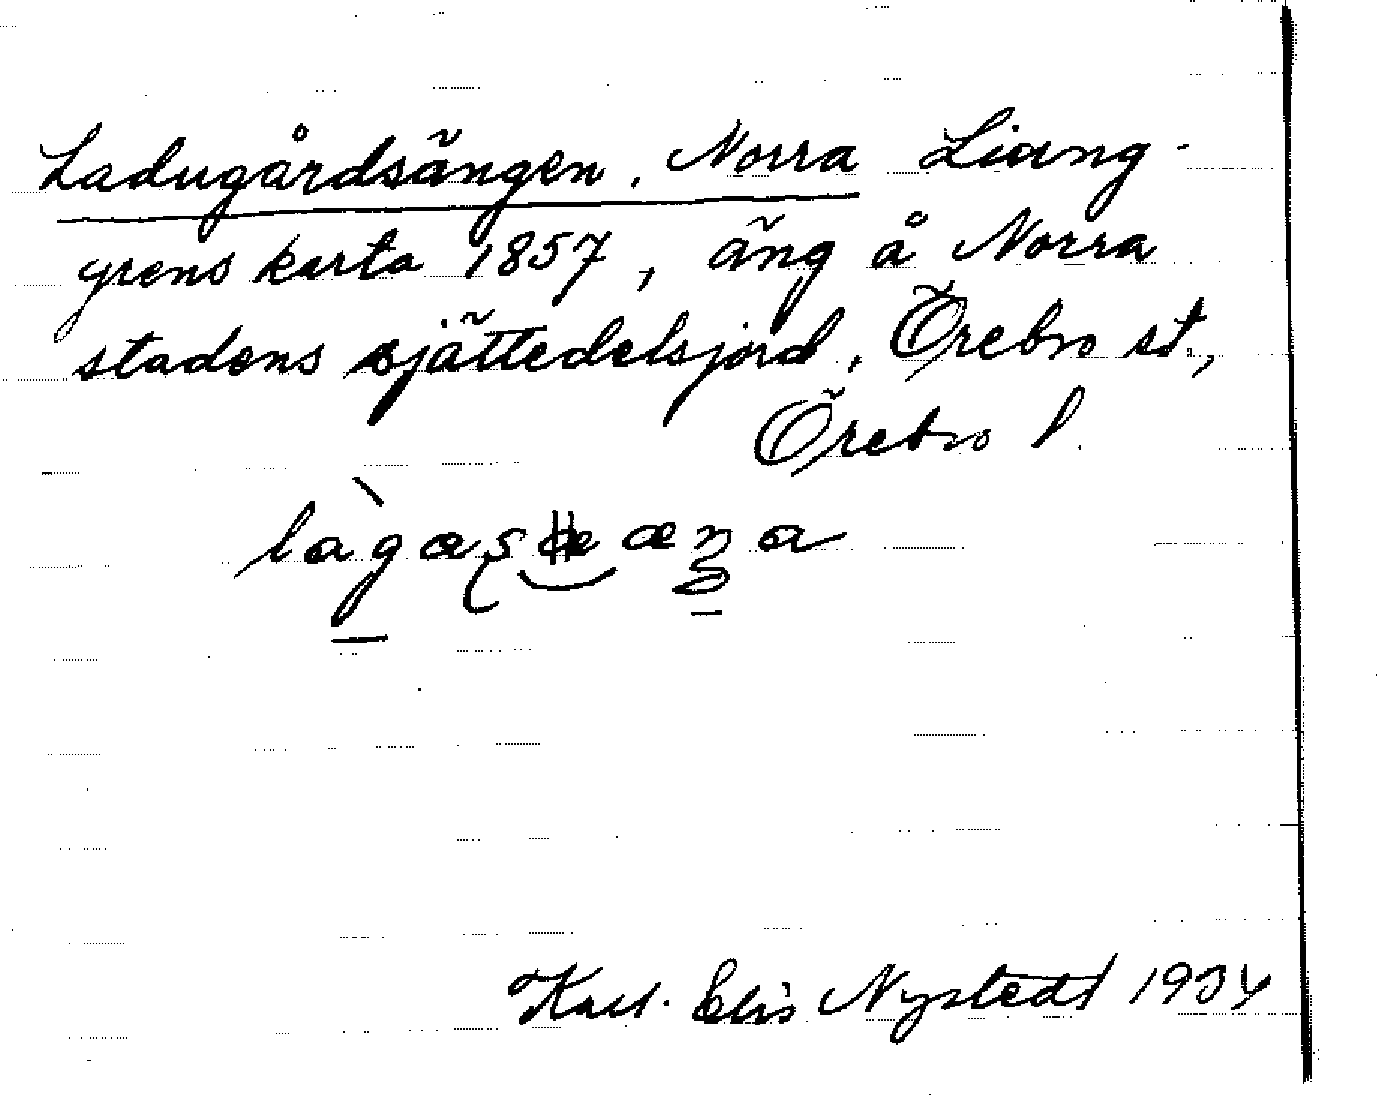 Ladugårdsängen, Norra Liung-
grens karta 1857, äng å Norra
stadens sjättedelsjord, Örebro st.,
Örebro l.
Karl Elis Nystedt 1934